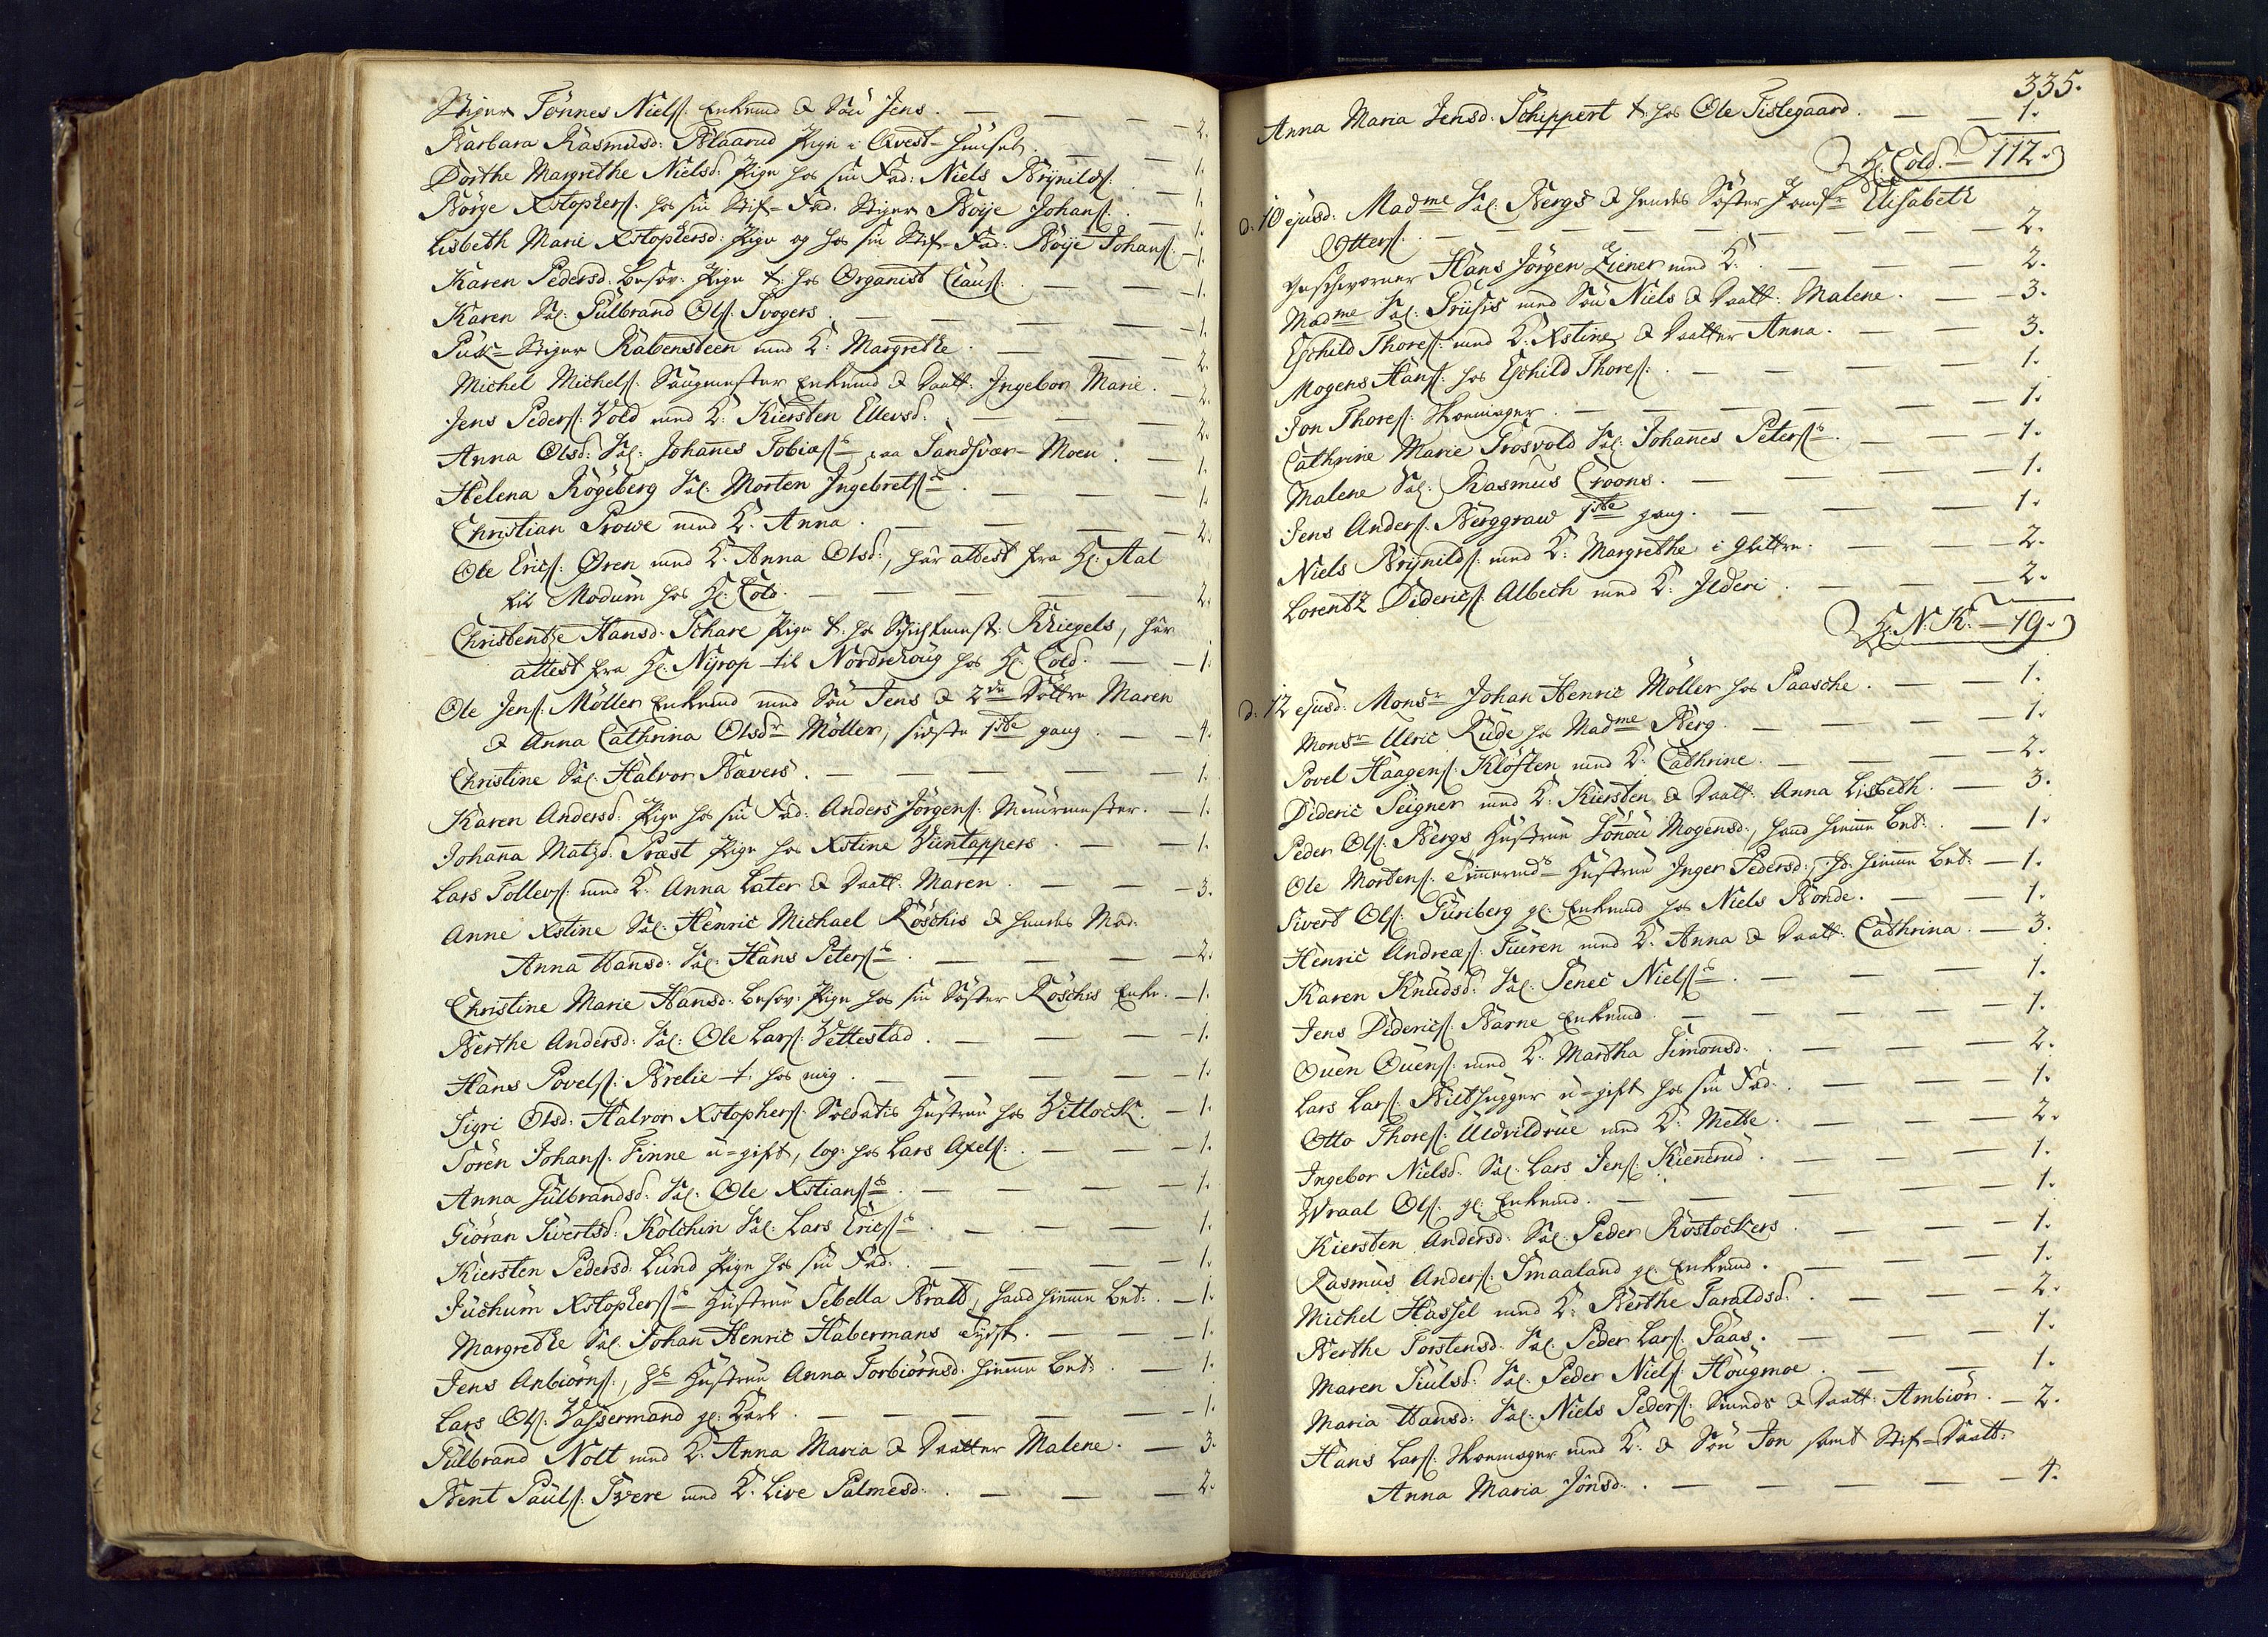 Stiger Tönnes Nielsß: Enkemd & Sön Jens. — 2.
Barbara Rasmusd: Blaarud Pige i Qvest-huuset. — 1.
Dorthe Margrethe Nielsd: Pige hos sin Fad: Niels Brÿnildsß: — 1.
Börge Xstophersß: hos sin Stif-Fad. Stiger Böÿe Johansß: — 1.
Lisbeth Marie Xstophersd: Pige og hos sin Stif-Fad: Böÿe Johansß: — 1.
Karen Pedersd: besov: Pige t: hos Organist Clausß: — 1.
Karen Sal: Gulbrand Olsß: Svogers. — 1.
Puk-Stiger Rabensteen med K: Margrethe. — 2.
Michel Michelsß: Enkemd & Daatt: Ingebor Marie. — 2.
Jens Pedersß: Vold med K: Kiersten Ellevsd: — 2.
Anna Olsd: Sal: Johanes Tobiæsß paa Sandsvær-Moen. — 1.
Helena Rögeberg Sal: Morten Ingebretsß. — 1.
Christian Prowe med K: Anna. — 2.
Ole Ericsß: Øren med K: Anna Olsd:, har attest fra Hr: Aal
til Modum hos Hr: Cold. — 2.
Christentze Hansd: Schare Pige t: hos Kriegels, har
attest fra Hr: Nÿrop til Nordrehoug hos Hr: Cold. — 1.
Ole Jensß: Möller Enkemd med Sön Jens & 2de Döttre Maren
& Anna Cathrina Olsdr Möller, sidste 1ste gang. — 4.
Christine Sal: Halvor Bævers. — 1.
Karen Andersd: Pige hos sin Fad: Anders Jörgensß: Muurmester. — 1.
Johana Matzd: Præst Pige hos Xstine Viintappers. — 1.
Lars Tollevsß: med K: Anna Later & Daatt: Maren. — 3.
Anne Xstine Sal: Henric Michael Röschis & hendes Mod:
Anna Hansd: Sal: Hans Petersß. — 2.
Christine Marie Hansd: besov: Pige hos sin Söster Röschis Enke. — 1.
Berthe Andersd: Sal: Ole Larsß: Vettestad. — 1.
Hans Povelsß: Brelie t: hos mig. — 1.
Sigri Olsd: Halvor Xstophersß: Soldatis Hustrue hos Vitlock. — 1.
Sören Johansß: Finne u-gift, log: hos Lars Axelsß: — 1.
Anna Gulbrandsd: Sal: Ole Xstiansß. — 1.
Giöran Sivertsd: Kolchin Sal: Lars Ericsß. — 1.
Kiersten Pedersd: Lund Pige hos sin Fad: — 1.
Juchum Xstophersß Hustrue Sebella Bratt, hand hieme bet: — 1.
Margrethe Sal: Johan Henric Habermans Tydsk. — 1.
Jens Anbiörnsß:, hs Hustrue Anna Torbiörnsd: hieme bet: — 1.
Lars Olsß: Vassermand gl: Karl. — 1.
Gulbrand Nolt med K: Anna Maria & Daatter Malene. — 3.
Bent Paulsß: Tvere med K: Live Palmesd: — 2.
335.
Anna Maria Jensd: Schippert t: hos Ole Tislegaard. — 1.
Hr: Cold. — 112.
d: 10 ejusd: Madme Sal: Bergs & hendes Söster Jomfr Elisabeth
Ottersß. — 2.
Geschworner Hans Jörgen Ziener med K: — 2.
Madme Sal: Friisis med Sön Niels & Daatt: Malene. — 3.
Eschild Thoresß: med K: Xstine & Daatter Anna. — 3.
Mogens Hansß: hos Eschild Thoresß: — 1.
Jon Thoresß: Skoemager. — 1.
Cathrine Marie Trosvold Sal: Johanes Petersß. — 1.
Malene Sal: Rasmus Croons. — 1.
Jens Andersß: Berggraw 1ste gang. — 1.
Niels Brÿnildsß: med K: Margrethe i Glittre. — 2.
Lorentz Didericsß: Albech med K: Ilderi. — 2.
Hr: N: K: — 19.
d: 12 ejusd: Monsr Johan Henric Möller hos Paasche. — 1.
Monsr Ulric Rude hos Madme Berg. — 1.
Povel Haagensß: Klöften med K: Cathrine. — 2.
Dideric Seigner med K: Kiersten & Daatt: Anna Lisbeth. — 3.
Peder Olsß: Bergs Hustrue Lönou Mogensd:, hand hieme bet: — 1.
Ole Mortensß: Timermds Hustrue Inger Pedersd:, hd: hieme bet: — 1.
Sivert Olsß: Furiberg gl: Enkemd hos Niels Bonde. — 1.
Henric Andreæsß: Fueren med K: Anna & Daatt: Cathrina. — 3.
Karen Knudsd: Sal: Tenec Nielsß. — 1.
Jens Didericsß: Barne Enkemd. — 1.
Ouen Ouensß: med K: Martha Simonsd: — 2.
Lars Larsß: Bilthugger u-gift hos sin Fad: — 1.
Otto Thoresß: Udvildrue med K: Mette. — 2.
Ingebor Nielsd: Sal: Lars Jensß: Kienerud. — 1.
Wraal Olsß: gl: Enkemd. — 1.
Kiersten Andersd: Sal: Peder Rostockers. — 1.
Rasmus Andersß: Smaaland gl: Enkemd. — 1.
Michel Hassel med K: Berthe Taraldsd: — 2.
Berthe Torstensd: Sal: Peder Larsß: Paas. — 1.
Maren Juulsd: Sal: Peder Nielsß: Hougmoe. — 1.
Maria Hansd: Sal: Niels Pedersß: Smeds & Daatt: Ambiör. — 2.
Hans Larsß: Skoemager med K: & Sön Jon samt Stif-Daatt:
Anna Maria Jönsd: — 4.